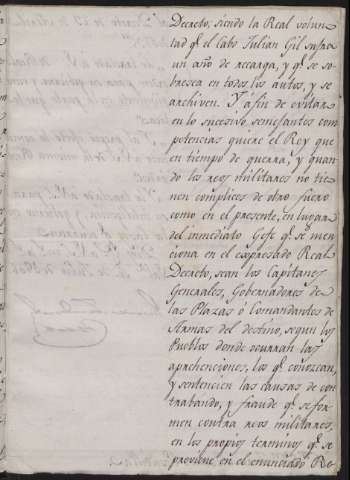 Decreto, siendo la Real volun-
tad q.e el Cabo Julian Gil supra
un año de recarga, y q.e se so-
bresea en todos los autos, y se
archiven. Y a fin de evitar
en lo sucesivo semejantes com
petencias quiere el Rey que
en tiempo de guerra, y quan-
do los reos militares no tie-
nen complices de otro fuero
como en el presente, en lugar
del inmediato Gefe q.e se men
ciona en el expresado Real
Decreto, sean los Capitanes
Generales, Gobernadores de
las Plazas ò Comandantes de
Armas del destino, segun los
Pueblos donde ocurran las
aprehenciones, los q.e conozcan,
y sentencien las causas de con
trabando, y fraude q.e se for-
men contra reos militares,
en los propios terminos q.e se
previene en el enunciado Re-